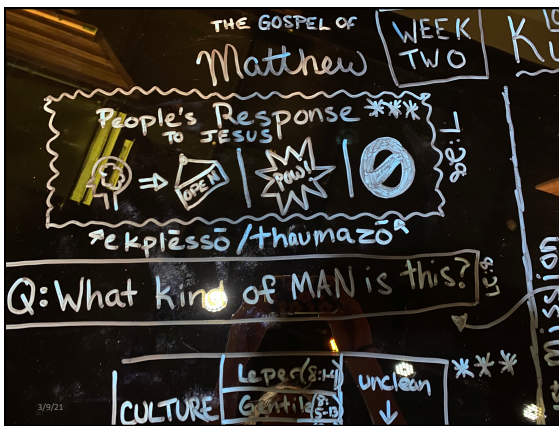 THE GOSPEL OF
Matthew
WEEK
TWO
People's Response ***
TO JESUS
7:28
OPEN
POW!
*ekplēssō/thaumazō*
Q: What kind of MAN is this?
8:27
CULTURE
Leper (8:1-4)
Gentile (8:5-13)
unclean
***
3/9/21